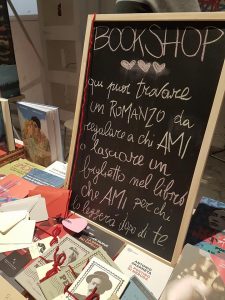 BOOKSHOP
qui puoi trovare
un ROMANZO da
regalare a chi AMI
o lasciare un
biglietto nel libro
che AMI per chi
lo leggerà dopo di te